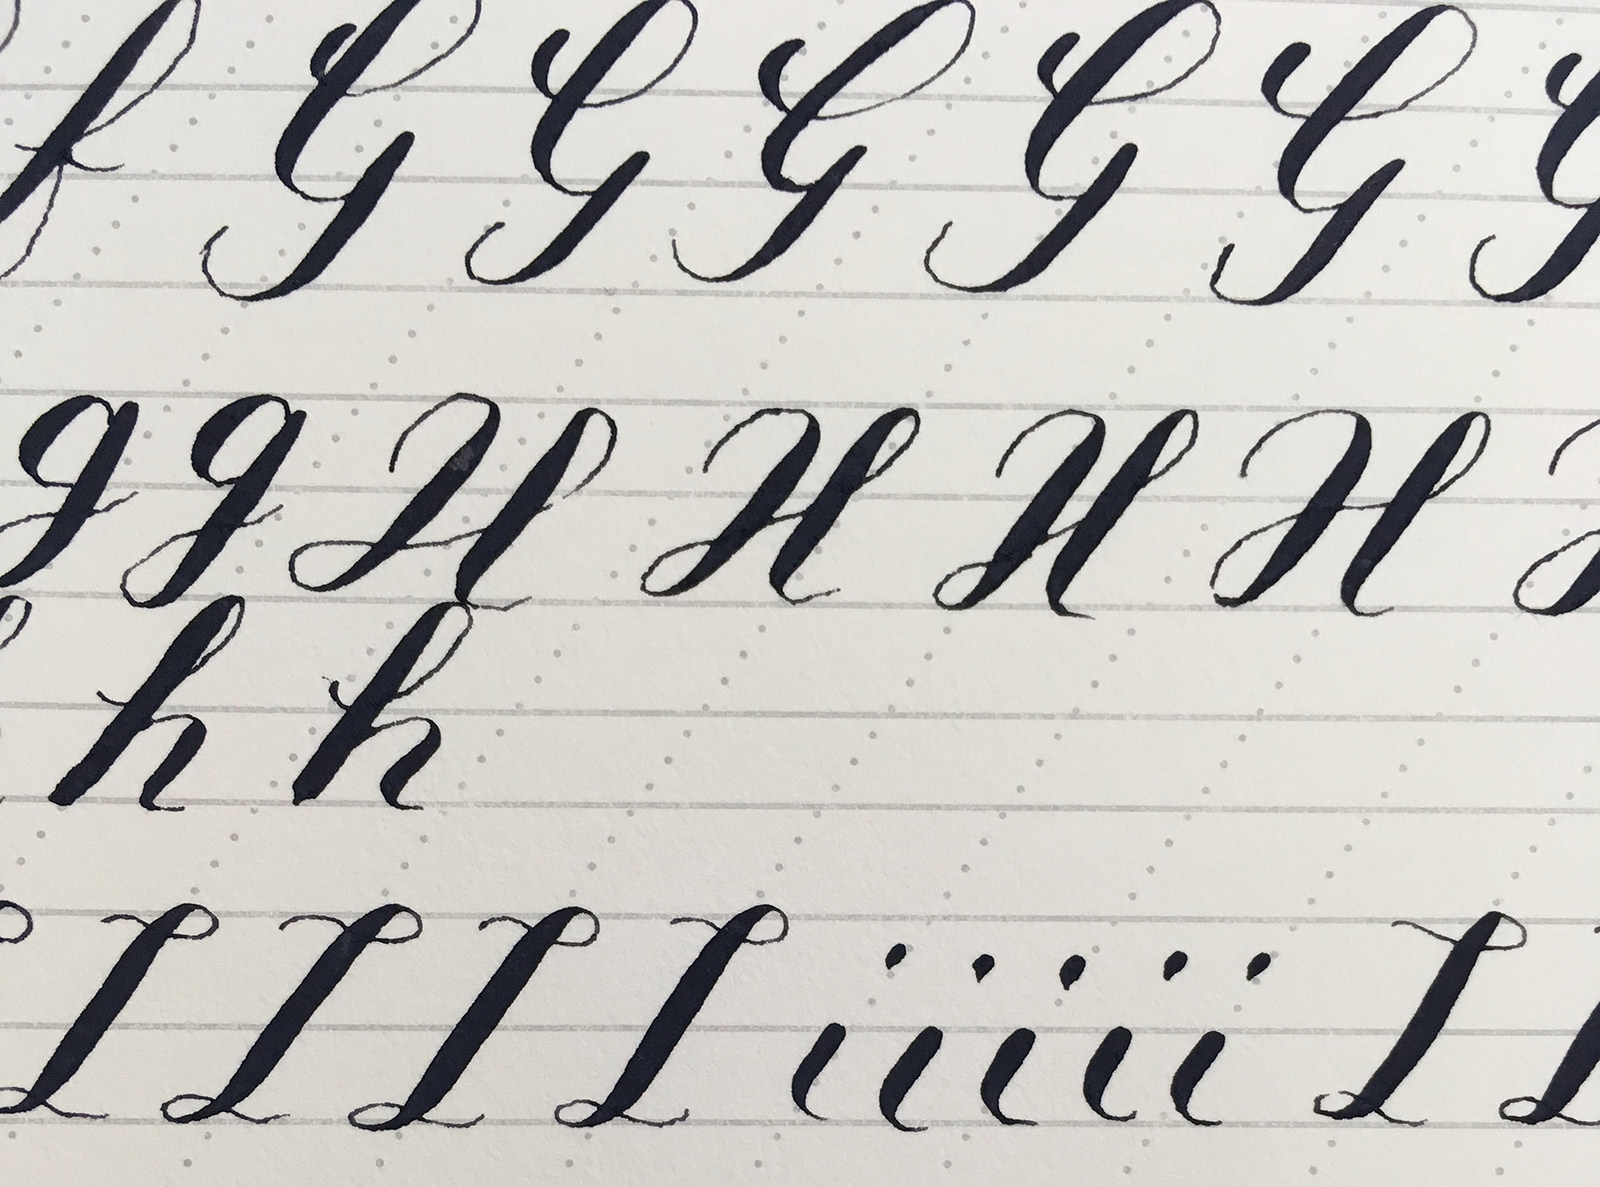 f G G G G G G
g g H H H H H
h h
I I I I i i i i i I I